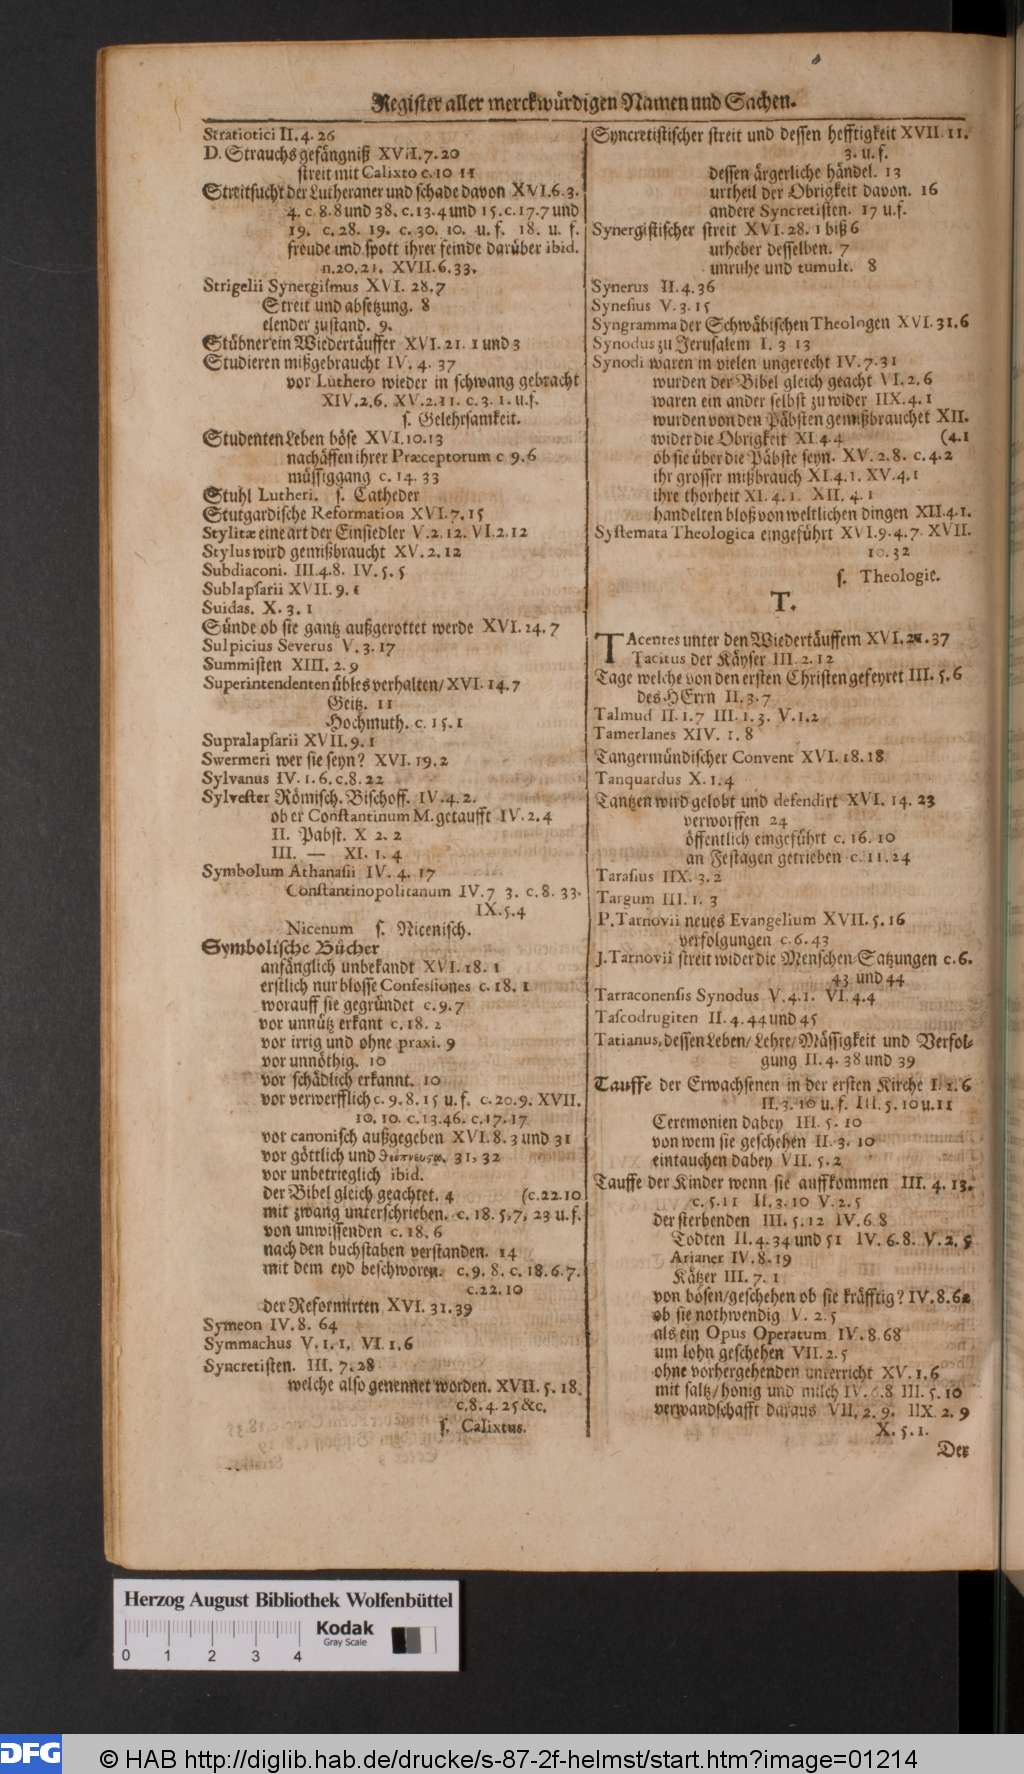 Register aller merckwürdigen Namen und Sachen.
Stratiotici II. 4. 26
D. Strauchs gefängniß XVII. 7. 20
streit mit Calixto c. 10 11
Streitsucht der Lutheraner und schade davon XVI. 6. 3.
4. c. 8. 8 und 38. c. 13. 4 und 15. c. 17. 7 und
19. c. 28. 19. c. 30. 10. u. f. 18. u. f.
freude und spott ihrer feinde darüber ibid.
n. 20. 21. XVII. 6. 33.
Strigelii Synergismus XVI. 28. 7
Streit und absetzung. 8
elender zustand. 9.
Stübner ein Wiedertäuffer XVI. 21. 1 und 3
Studieren mißgebraucht IV. 4. 37
vor Luthero wieder in schwang gebracht
XIV. 2. 6. XV. 2. 11. c. 3. 1. u. f.
s. Gelehrsamkeit.
Studenten Leben böse XVI. 10. 13
nachäffen ihrer Præceptorum c 9. 6
müssiggang c. 14. 33
Stuhl Lutheri. s. Catheder
Stutgardische Reformation XVI. 7. 15
Stylitæ eine art der Einsiedler V. 2. 12. VI. 2. 12
Stylus wird gemißbraucht XV. 2. 12
Subdiaconi. III. 4. 8. IV. 5. 5
Sublapsarii XVII. 9. 1
Suidas. X. 3. 1
Sünde ob sie gantz außgerottet werde XVI. 24. 7
Sulpicius Severus V. 3. 17
Summisten XIII. 2. 9
Superintendenten übles verhalten/ XVI. 14. 7
Geitz. 11
Hochmuth. c. 15. 1
Supralapsarii XVII. 9. 1
Swermeri wer sie seyn? XVI. 19. 2
Sylvanus IV. 1. 6. c. 8. 22
Sylvester Römisch. Bischoff. IV. 4. 2.
ob er Constantinum M. getaufft IV. 2. 4
II. Pabst. X 2. 2
III. — XI. 1. 4
Symbolum Athanasii IV. 4. 17
Constantinopolitanum IV. 7 3. c. 8. 33.
IX. 5. 4
Nicenum s. Nicenisch.
Symbolische Bücher
anfänglich unbekandt XVI. 18. 1
erstlich nur blosse Confessiones c. 18. 1
worauff sie gegründet c. 9. 7
vor unnütz erkant c. 18. 2
vor irrig und ohne praxi. 9
vor unnöthig. 10
vor schädlich erkannt. 10
vor verwerfflich c. 9. 8. 15 u. f. c. 20. 9. XVII.
10. 10. c. 13. 46. c. 17. 17
vor canonisch außgegeben XVI. 8. 3 und 31
vor göttlich und 31, 32
vor unbetrieglich ibid.
der Bibel gleich geachtet. 4 (c. 22. 10
mit zwang unterschrieben. c. 18. 5, 7, 23 u. f.
von unwissenden c. 18. 6
nach den buchstaben verstanden. 14
mit dem eyd beschworen. c. 9. 8. c. 18. 6. 7.
c. 22. 10
der Reformirten XVI. 31. 39
Symeon IV. 8. 64
Symmachus V. 1. 1. VI. 1. 6
Syncretisten. III. 7. 28
welche also genennet worden. XVII. 5. 18.
c. 8. 4. 25 &c.
s. Calixtus.
Syncretistischer streit und dessen hefftigkeit XVII. 11.
3. u. f.
dessen ärgerliche händel. 13
urtheil der Obrigkeit davon. 16
andere Syncretisten. 17 u. f.
Synergistischer streit XVI. 28. 1 biß 6
urheber desselben. 7
unruhe und tumult. 8
Synerus II. 4. 36
Synesius V. 3. 15
Syngramma der Schwäbischen Theologen XVI. 31. 6
Synodus zu Jerusalem I. 3 13
Synodi waren in vielen ungerecht IV. 7. 31
wurden der Bibel gleich geacht VI. 2. 6
waren ein ander selbst zu wider IIX. 4. 1
wurden von den Päbsten gemißbrauchet XII.
wider die Obrigkeit XI. 4 4 (4. 1
ob sie über die Päbste seyn. XV. 2. 8. c. 4. 2
ihr grosser mißbrauch XI. 4. 1. XV. 4. 1
ihre thorheit XI. 4. 1. XII. 4. 1
handelten bloß von weltlichen dingen XII. 4. 1.
Systemata Theologica eingeführt XVI. 9. 4. 7. XVII.
10. 32
s. Theologie.
T.
TAcentes unter den Wiedertäuffern XVI. 37
Tacitus der Käyser III. 2. 12
Tage welche von den ersten Christen gefeyret III. 5. 6
des HErrn II. 3. 7
Talmud II. 1. 7 III. 1. 3. V. 1. 2
Tamerlanes XIV. 1. 8
Tangermündischer Convent XVI. 18. 18
Tanquardus X. 1. 4
Tantzen wird gelobt und defendirt XVI. 14. 23
verworffen 24
öffentlich eingeführt c. 16. 10
an Festagen getrieben c. 11. 24
Tarasius IIX. 3. 2
Targum III. 1. 3
P. Tarnovii neues Evangelium XVII. 5. 16
verfolgungen c. 6. 43
J. Tarnovii streit wider die Menschen/Satzungen c. 6.
43 und 44
Tarraconensis Synodus V. 4. 1. VI. 4. 4
Tascodrugiten II. 4. 44 und 45
Tatianus, dessen Leben/ Lehre/ Mässigkeit und Verfol-
gung II. 4. 38 und 39
Tauffe der Erwachsenen in der ersten Kirche I. 2. 6
II. 3. 10 u. f. III. 5. 10 u. 11
Ceremonien dabey III. 5. 10
von wem sie geschehen II. 3. 10
eintauchen dabey VII. 5. 2
Tauffe der Kinder wenn sie auffkommen III. 4. 13.
c. 5. 11 II. 3. 10 V. 2. 5
der sterbenden III. 5. 12 IV. 6 8
Todten II. 4. 34 und 51 IV. 6. 8. V. 2. 5
Arianer IV. 8. 19
Kätzer III. 7. 1
von bösen/ geschehen ob sie kräfftig? IV. 8. 62
ob sie nothwendig V. 2. 5
als ein Opus Operatum IV. 8. 68
um lohn geschehen VII. 2. 5
ohne vorhergehenden unterricht XV. 1. 6
mit saltz/ honig und milch IV. 6. 8 III. 5. 10
verwandschafft daraus VII. 2. 9. IIX. 2. 9
X. 5. 1.
Der
Herzog August Bibliothek Wolfenbüttel
Kodak
Gray Scale
0 1 2 3 4
DFG
© HAB http://diglib.hab.de/drucke/s-87-2f-helmst/start.htm?image=01214